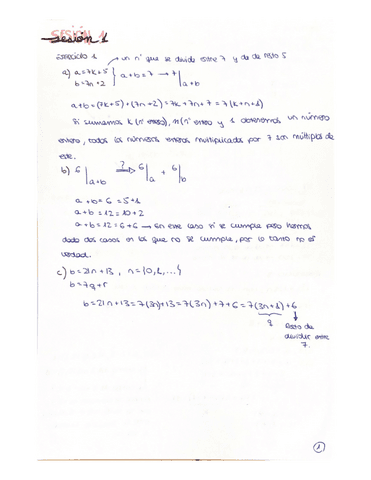 SESIÓN 1
Sesión 1
EJERCICIO 1 → un nº que se divide entre 7 y da de resto 5
a) a=7k+5
b=7n+2 } a+b=7 → 7|a+b
a+b=(7k+5)+(7n+2)=7k+7n+7=7(k+n+1)
Si sumamos k (nº entero), n (nº entero y 1 obtenemos un número
entero, todos los números enteros multiplicados por 7 son múltiplos de
este.
b) 6|a+b ?⇒ 6|a + 6|b
a+b=6=5+1
a+b=12=10+2
a+b=12=6+6 → En este caso sí se cumple pero hemos
dado dos casos en los que no se cumple, por lo tanto no es
verdad.
c) b=21n+13, n={0,1,...}
b=7q+r
b=21n+13=7(3n)+13=7(3n)+7+6=7(3n+1)+6
q Resto de
dividir entre
7.
1